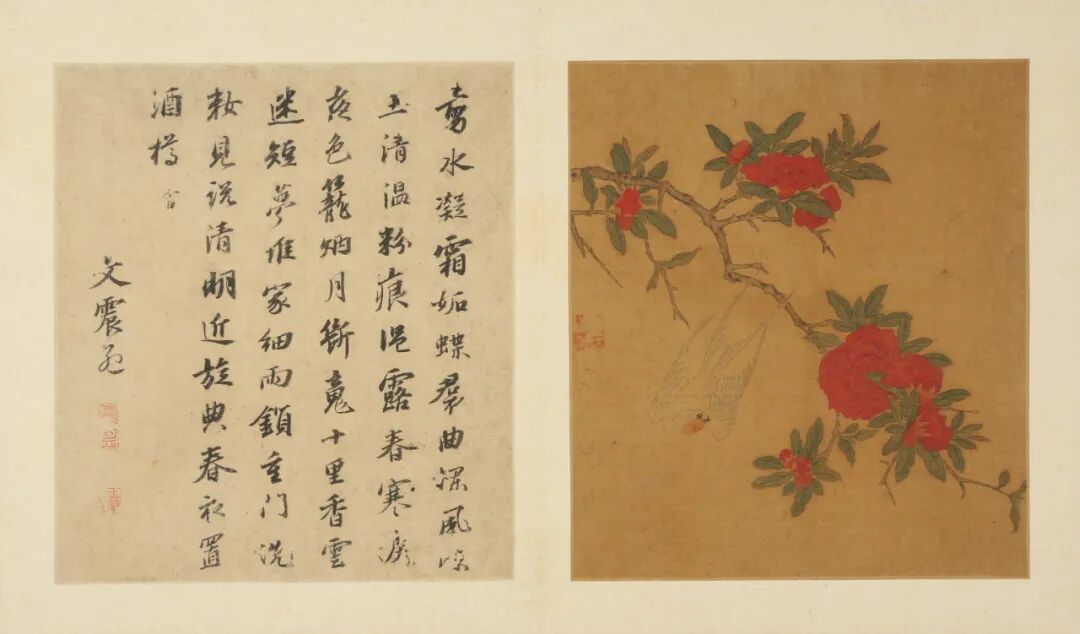 剪水凝霜妬蝶裠曲闌風味
玉清温粉痕浥露春寒淚
夜色籠烟月斷魂十里香雲
迷短夢誰家細雨鎖重門洗
妝見説清明近旋典春衣置
酒樽 含
文震孟